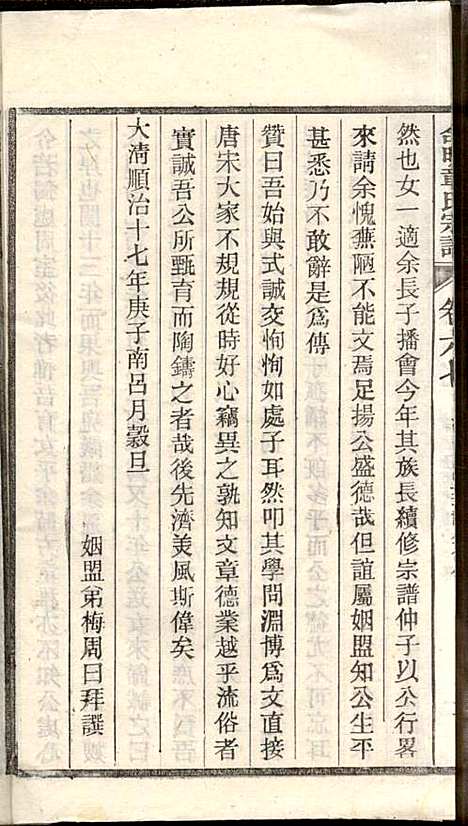 章氏宗譜 卷六七
然也女一適余長子播會今年其族長續修宗譜仲子以公行畧
來請余愧蕪陋不能文焉足揚公盛德哉但誼屬姻盟知公生平
甚悉乃不敢辭是爲傳
贊曰吾始與式誠交恂恂如處子耳然叩其學問淵博爲文直接
唐宋大家不規規從時好心竊異之孰知文章德業越乎流俗者
實誠吾公所甄育而陶鑄之者哉後先濟美風斯偉矣
大清順治十七年庚子南呂月穀旦
姻盟弟梅周曰拜譔